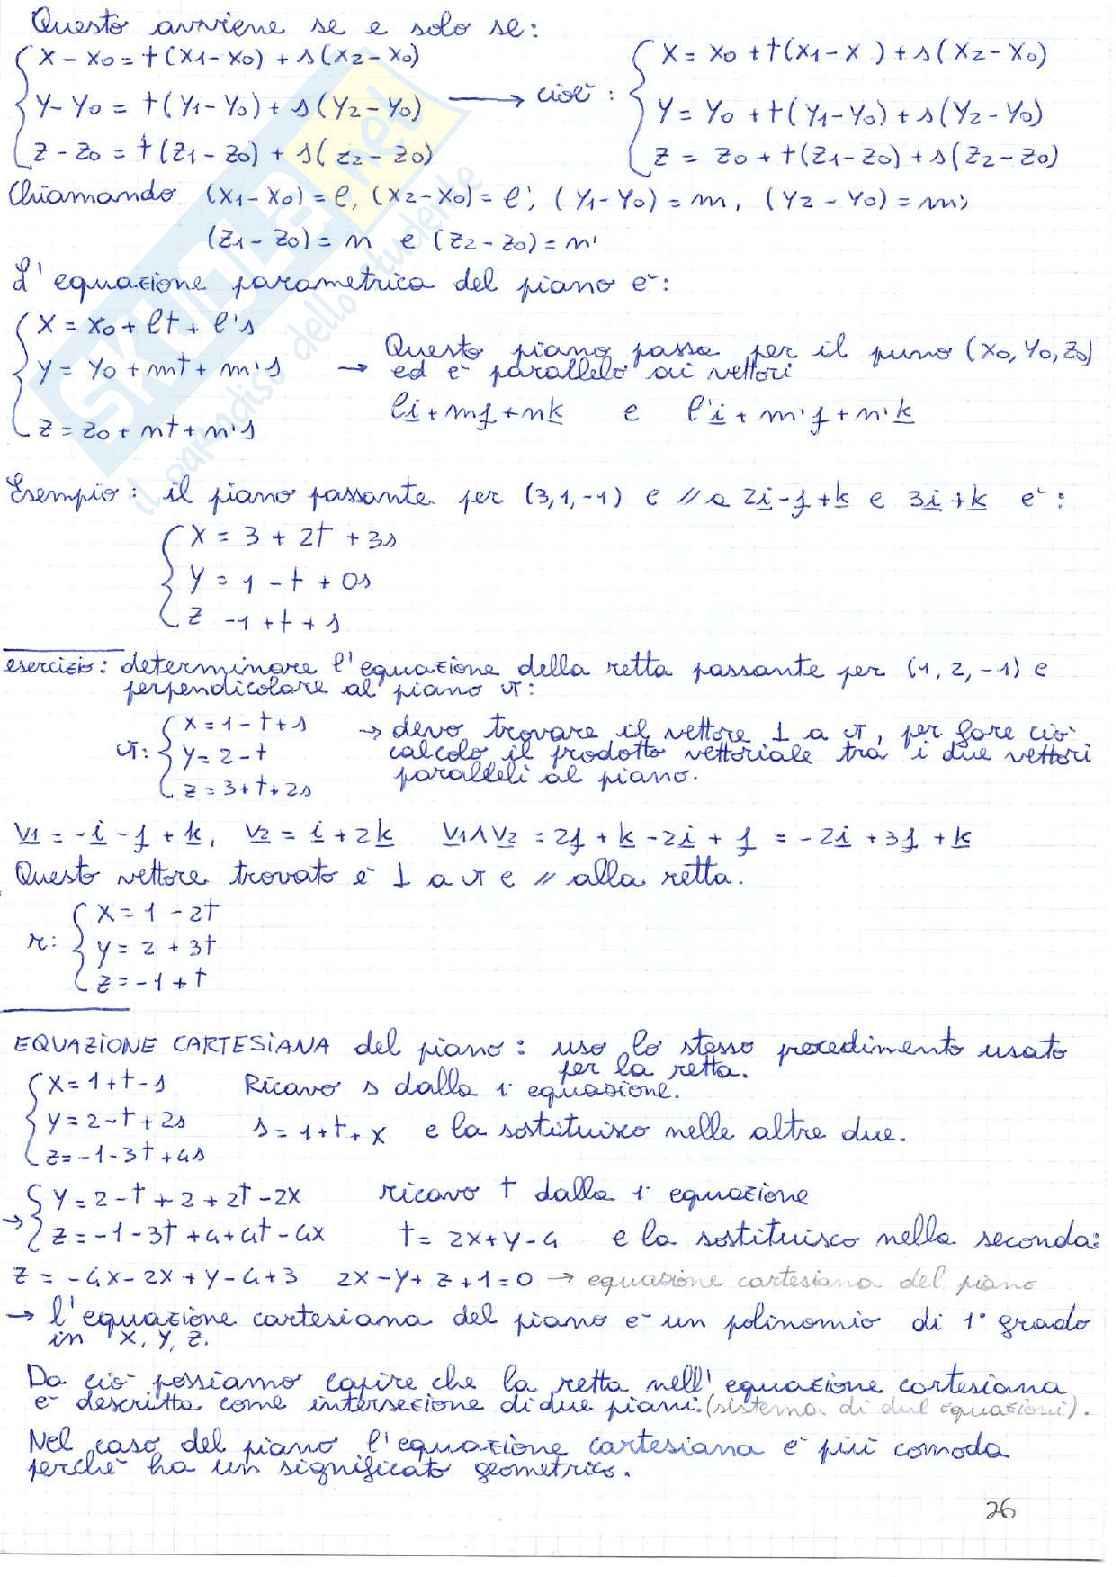 Questo avviene se e solo se:
{ x - x0 = t(x1-x0) + s(x2-x0)
y - y0 = t(y1-y0) + s(y2-y0) → cioè:
z - z0 = t(z1-z0) + s(z2-z0)
{ x = x0 + t(x1-x ) + s(x2-x0)
y = y0 + t(y1-y0) + s(y2-y0)
z = z0 + t(z1-z0) + s(z2-z0)
Chiamando (x1-x0) = l, (x2-x0) = l', (y1-y0) = m, (y2-y0) = m',
(z1-z0) = n e (z2-z0) = n'
L'equazione parametrica del piano è:
{ x = x0 + lt + l's
y = y0 + mt + m's
z = z0 + nt + n's
→ Questo piano passa per il puno (x0, y0, z0)
ed è parallelo ai vettori
li + mj + nk e l'i + m'j + n'k
Esempio: il piano passante per (3,1,-1) e // a 2i-j+k e 3i+k è:
{ x = 3 + 2t + 3s
y = 1 - t + 0s
z -1 + t + s
esercizio: determinare l'equazione della retta passante per (1, 2, -1) e
perpendicolare al piano π:
π: { x = 1 - t + s
y = 2 - t
z = 3 + t + 2s
→ devo trovare il vettore ⊥ a π, per fare ciò
calcolo il prodotto vettoriale tra i due vettori
paralleli al piano.
v1 = -i - j + k, v2 = i + 2k v1∧v2 = 2j + k - 2i + j = -2i + 3j + k
Questo vettore trovato è ⊥ a π e // alla retta.
r: { x = 1 - 2t
y = 2 + 3t
z = -1 + t
EQUAZIONE CARTESIANA del piano: uso lo stesso procedimento usato
per la retta.
{ x = 1 + t - s
y = 2 - t + 2s
z = -1 - 3t + 4s
Ricavo s dalla 1ª equazione.
s = 1 + t + x e la sostituisco nelle altre due.
→ { y = 2 - t + 2 + 2t - 2x ricavo t dalla 1ª equazione
z = -1 - 3t + 4 + 4t - 4x t = 2x + y - 4 e la sostituisco nella seconda:
z = -4x - 2x + y - 4 + 3 2x - y + z + 1 = 0 → equazione cartesiana del piano
→ l'equazione cartesiana del piano è un polinomio di 1° grado
in x, y, z.
Da ciò possiamo capire che la retta nell'equazione cartesiana
è descritta come intersezione di due piani. (sistema di due equazioni).
Nel caso del piano l'equazione cartesiana è più comoda
perchè ha un significato geometrico.
26
SKUOLA.net
il paradiso dello studente